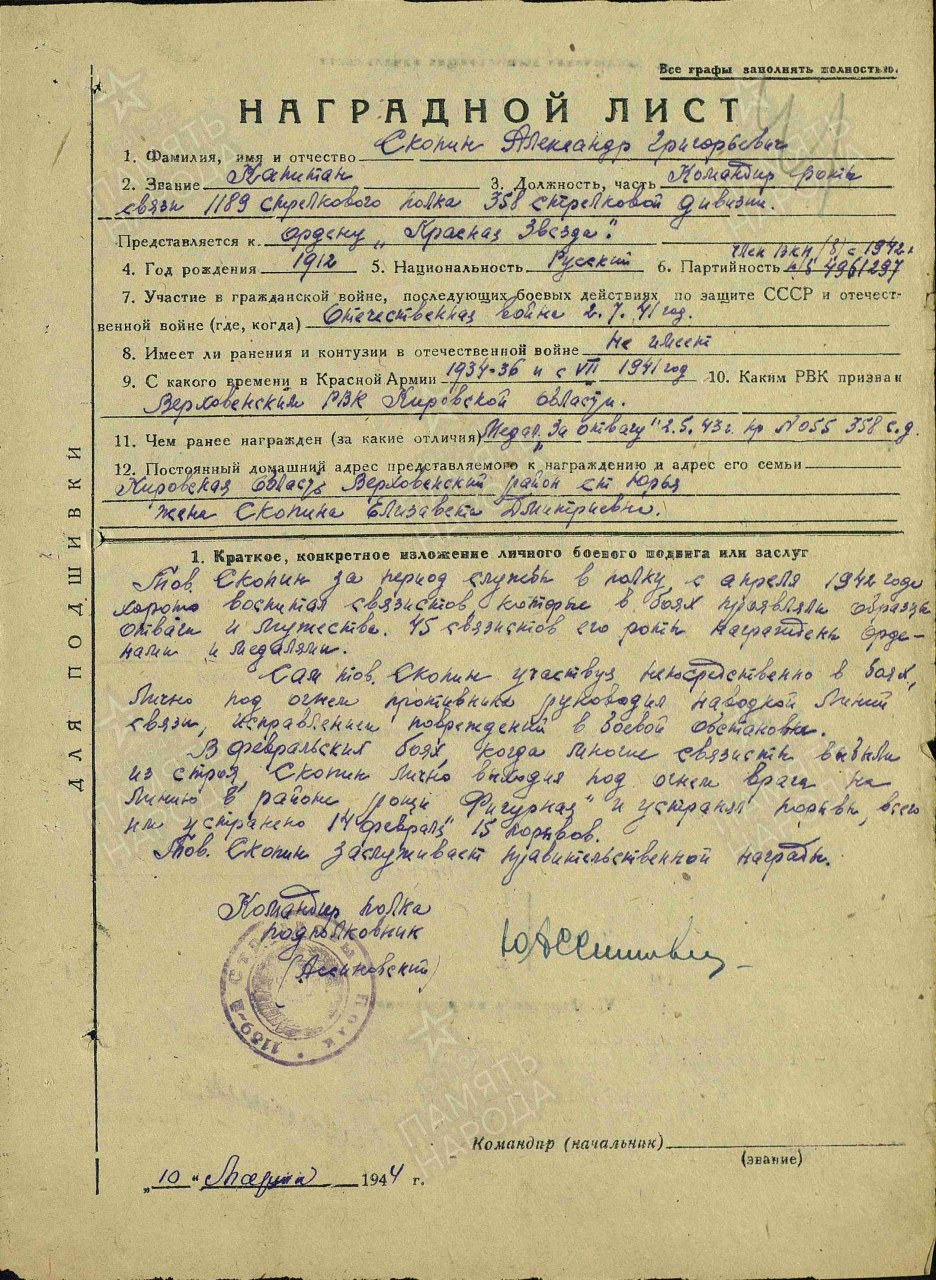 Все графы заполнять полностью.
НАГРАДНОЙ ЛИСТ
1. Фамилия, имя и отчество Скопин Александр Григорьевич
2. Звание Капитан 3. Должность, часть Командир роты
связи 1189 стрелкового полка 358 стрелковой дивизии.
Представляется к ордену „Красная Звезда“.
член ВКП(б) с 1942 г
4. Год рождения 1912 5. Национальность Русский 6. Партийность п/б 4961297
7. Участие в гражданской войне, последующих боевых действиях по защите СССР и отечест-
венной войне (где, когда) Отечественная война 2.7.41 год.
8. Имеет ли ранения и контузии в отечественной войне Не имеет
9. С какого времени в Красной Армии 1934-36 и с VII 1941 год 10. Каким РВК призван
Верховенским РВК Кировской области.
11. Чем ранее награжден (за какие отличия) Медал. „За отвагу“ 2.5.43 г. пр N 055 358 с.д.
12. Постоянный домашний адрес представляемого к награждению и адрес его семьи
Кировская область Верховенский район ст Юрья
жена Скопина Елизавета Дмитриевна.
1. Краткое, конкретное изложение личного боевого подвига или заслуг
Тов. Скопин за период службы в полку с апреля 1942 года
хорошо воспитал связистов, которые в боях проявляли образцы
отваги и мужества. 45 связистов его роты награждены орде-
нами и медалями.
Сам тов. Скопин участвуя непосредственно в боях,
лично под огнем противника руководил наводкой линий
связи, исправлением повреждений в боевой обстановке.
В февральских боях, когда многие связисты выбыли
из строя, Скопин лично выходил под огнем врага на
линию в районе рощи „Фигурная“ и устранял порывы, всего
им устранено 14 февраля 15 порывов.
Тов. Скопин заслуживает правительственной награды.
Командир полка
подполковник
(Ассиновский)
1189-й Стрелковый Полк
Командир (начальник)
(звание)
„10“ Марта 1944 г.
ДЛЯ ПОДШИВКИ
ПАМЯТЬ
НАРОДА